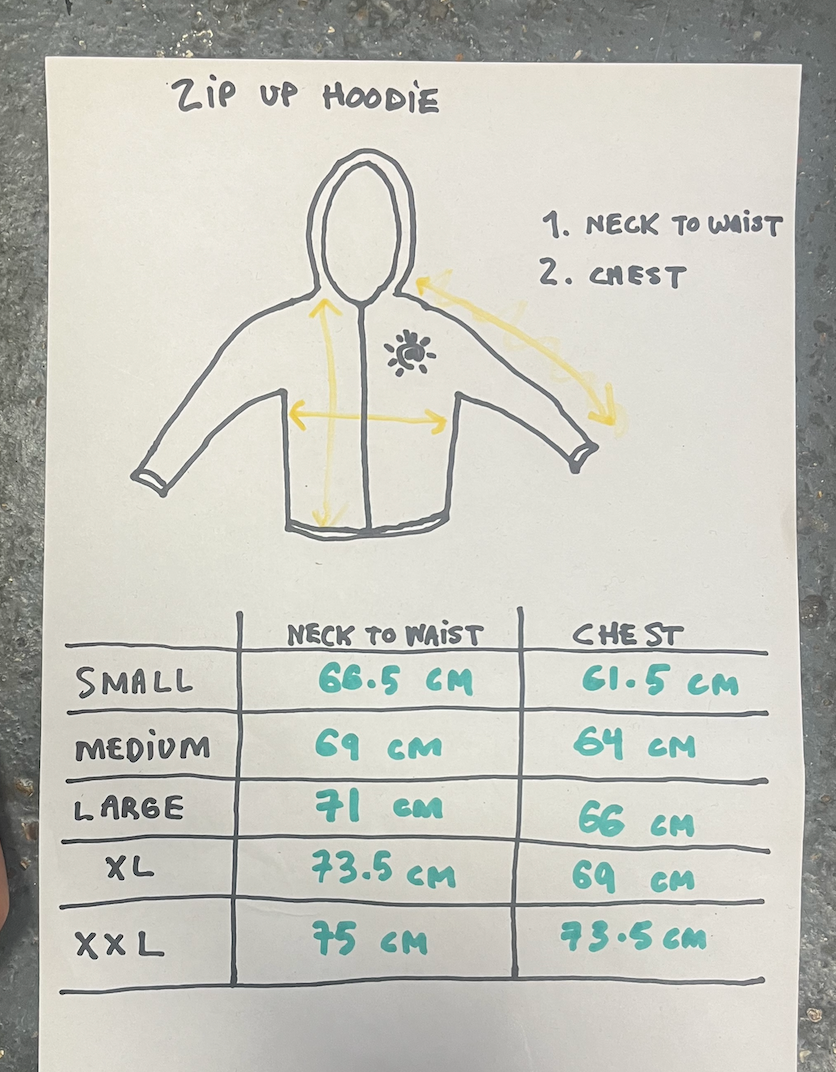 ZiP UP HOODiE
1. NECK TO WAiST
2. CHEST
NECK TO WAiST CHEST
SMALL 66.5 CM 61.5 CM
MEDiUM 69 CM 64 CM
LARGE 71 CM 66 CM
XL 73.5 CM 69 CM
XXL 75 CM 73.5 CM